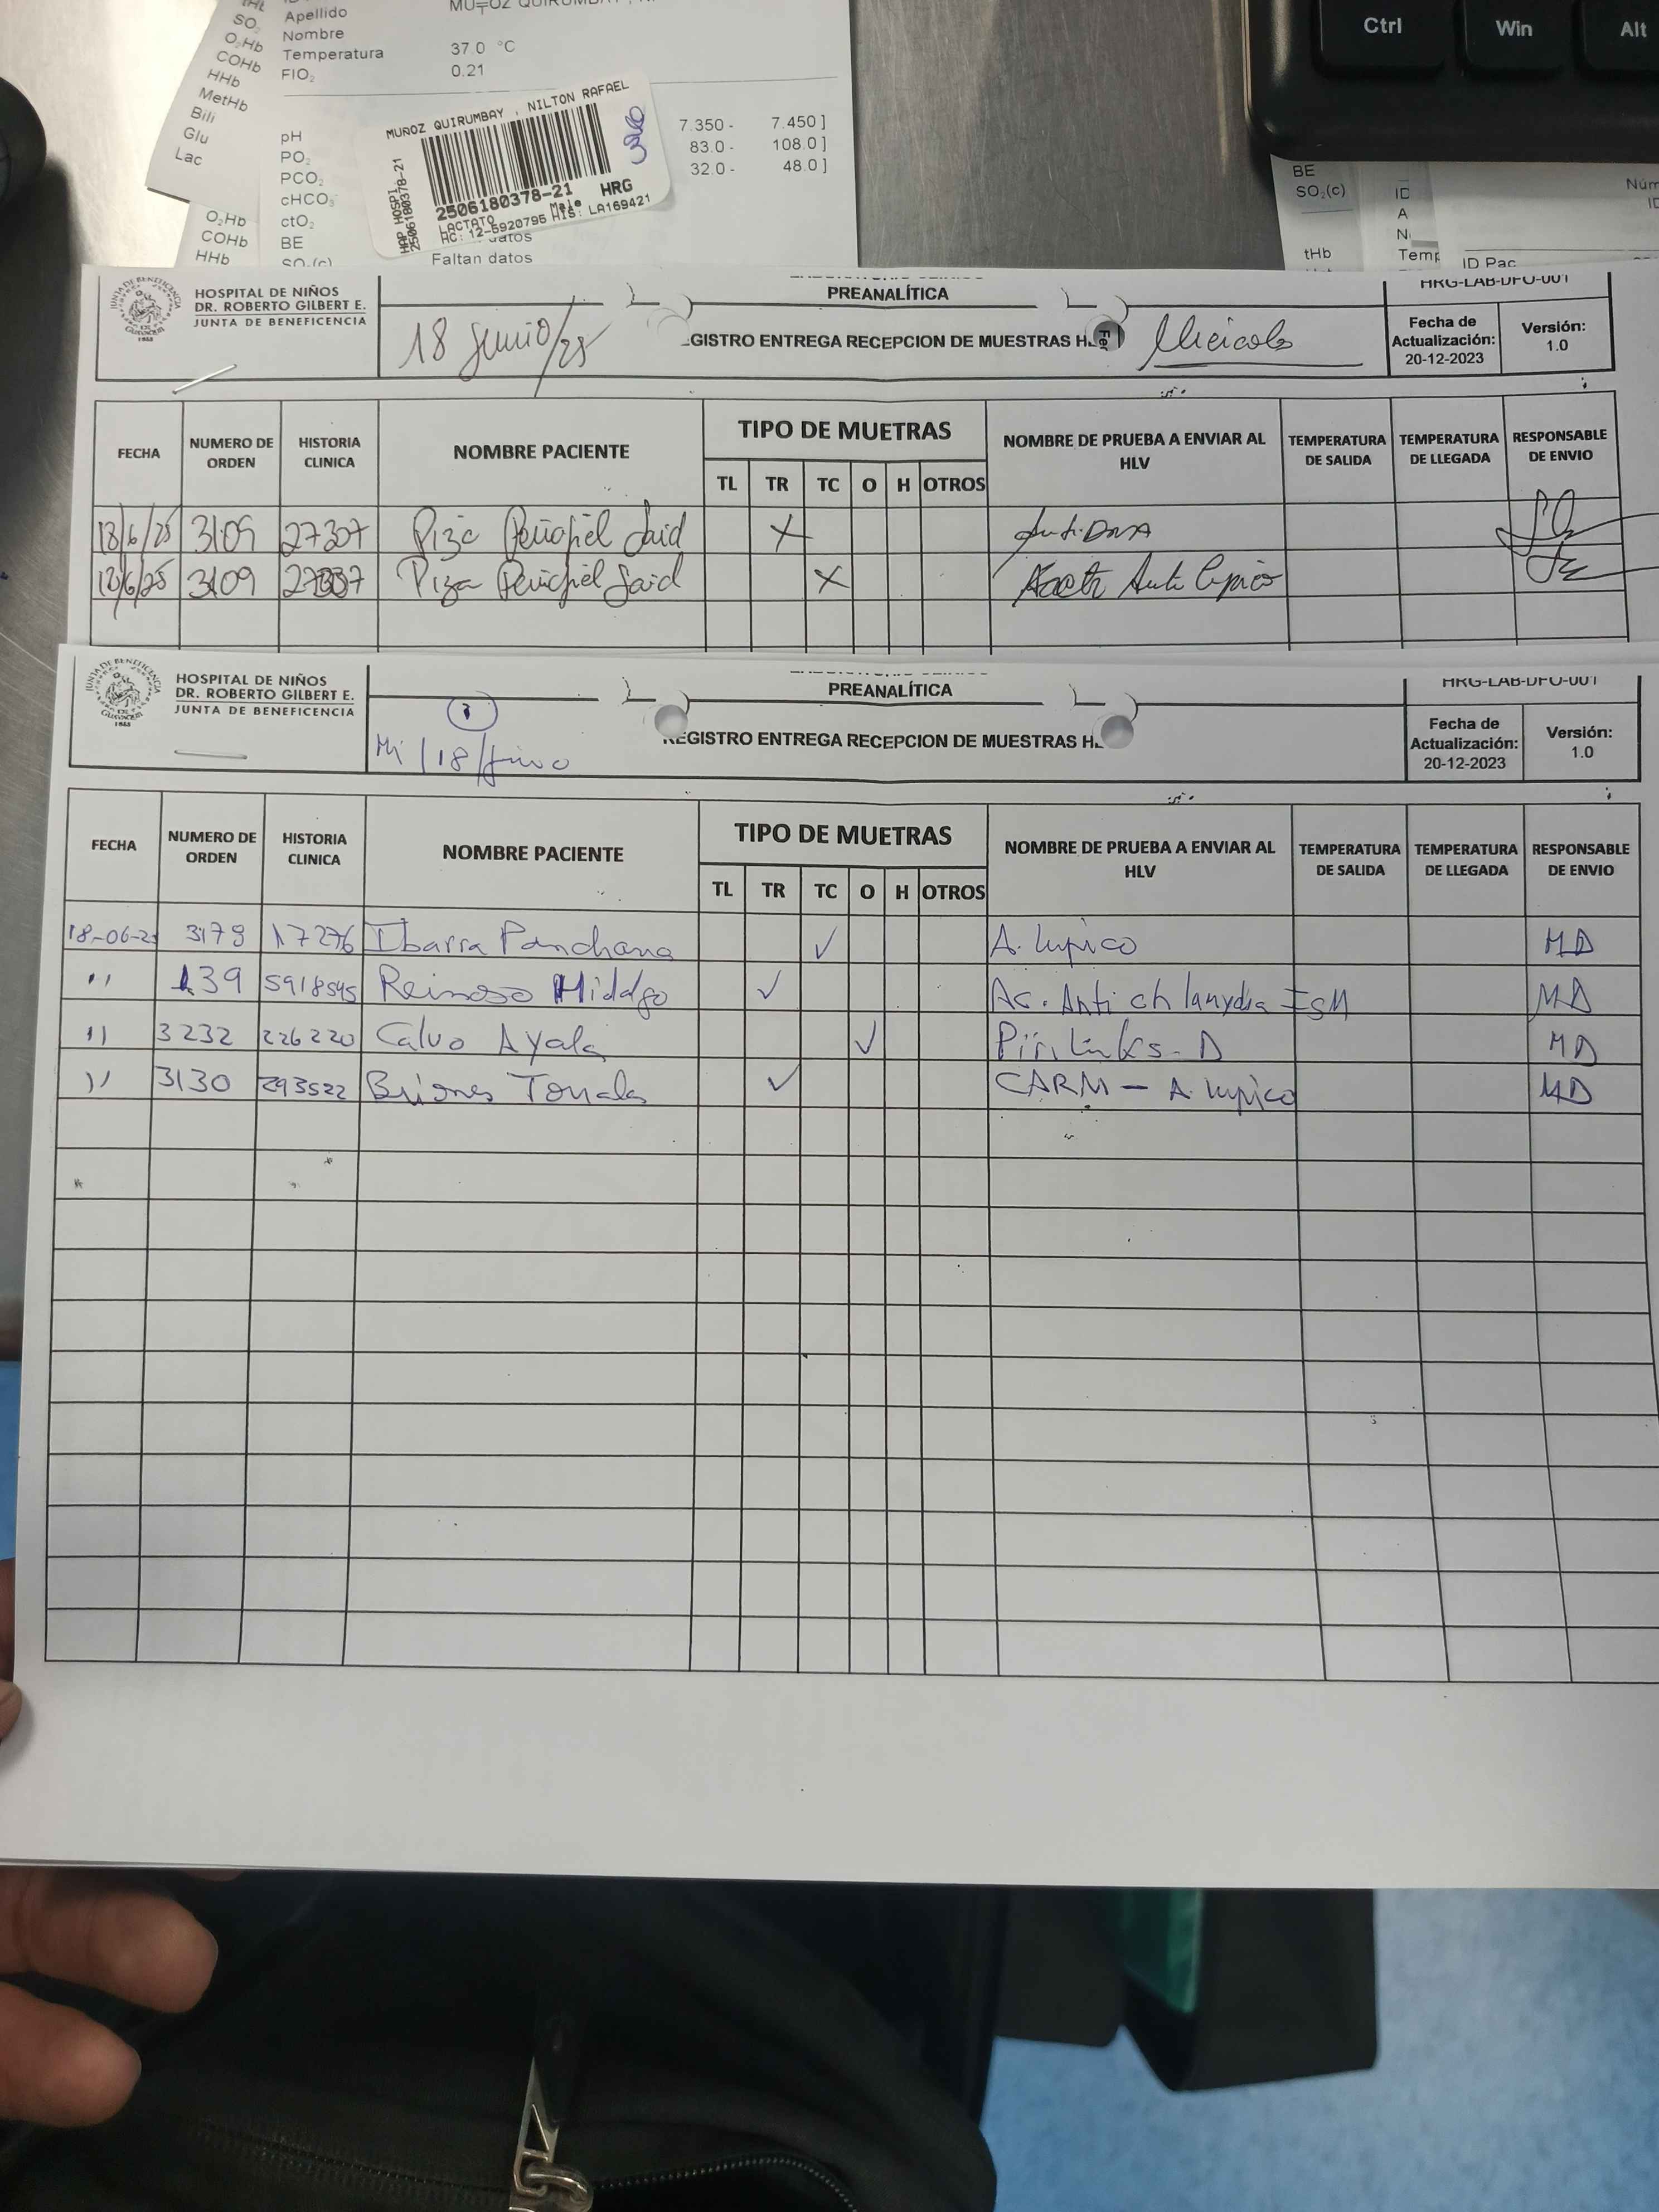 SO₂
O₂Hb
COHb
HHb
MetHb
Bili
Glu
Lac
Apellido
Nombre
Temperatura 37.0 °C
FIO₂ 0.21
MUÑOZ QUIRUMBAY , NILTON RAFAEL
2506180378-21 HRG
LACTATO Male
HC: 12-5920795 HIS: LA169421
2506180378-21
pH 7.350 - 7.450 ]
PO₂ 83.0 - 108.0 ]
PCO₂ 32.0 - 48.0 ]
cHCO₃
ctO₂
BE
SO₂(c) Faltan datos
O₂Hb
COHb
HHb
Ctrl Win Alt
BE
SO₂(c)
tHb
ID Pac
HOSPITAL DE NIÑOS
DR. ROBERTO GILBERT E.
JUNTA DE BENEFICENCIA
18 Junio/25
PREANALÍTICA
EGISTRO ENTREGA RECEPCION DE MUESTRAS H
Miercoles
HRG-LAB-DFO-001
Fecha de Actualización: 20-12-2023
Versión: 1.0
FECHA NUMERO DE ORDEN HISTORIA CLINICA NOMBRE PACIENTE TIPO DE MUETRAS NOMBRE DE PRUEBA A ENVIAR AL HLV TEMPERATURA DE SALIDA TEMPERATURA DE LLEGADA RESPONSABLE DE ENVIO
TL TR TC O H OTROS
18/6/25 3109 27307 Piza Peñafiel Said X Anti-DNA
18/6/25 3109 Piza Peñafiel Said X Anti Lupico
HOSPITAL DE NIÑOS
DR. ROBERTO GILBERT E.
JUNTA DE BENEFICENCIA
Mi/18/Junio
PREANALÍTICA
REGISTRO ENTREGA RECEPCION DE MUESTRAS H
HRG-LAB-DFO-001
Fecha de Actualización: 20-12-2023
Versión: 1.0
FECHA NUMERO DE ORDEN HISTORIA CLINICA NOMBRE PACIENTE TIPO DE MUETRAS NOMBRE DE PRUEBA A ENVIAR AL HLV TEMPERATURA DE SALIDA TEMPERATURA DE LLEGADA RESPONSABLE DE ENVIO
TL TR TC O H OTROS
18-06-25 3179 17276 Ibarra Panchana ✓ A. lupico MD
'' 139 5918545 Reinoso Hidalgo ✓ Ac. Anti chlamydia IgM MD
'' 3232 226220 Calvo Ayala ✓ Pirilinks-D MD
'' 3130 293522 Briones Tomala ✓ CARM - A lupico MD